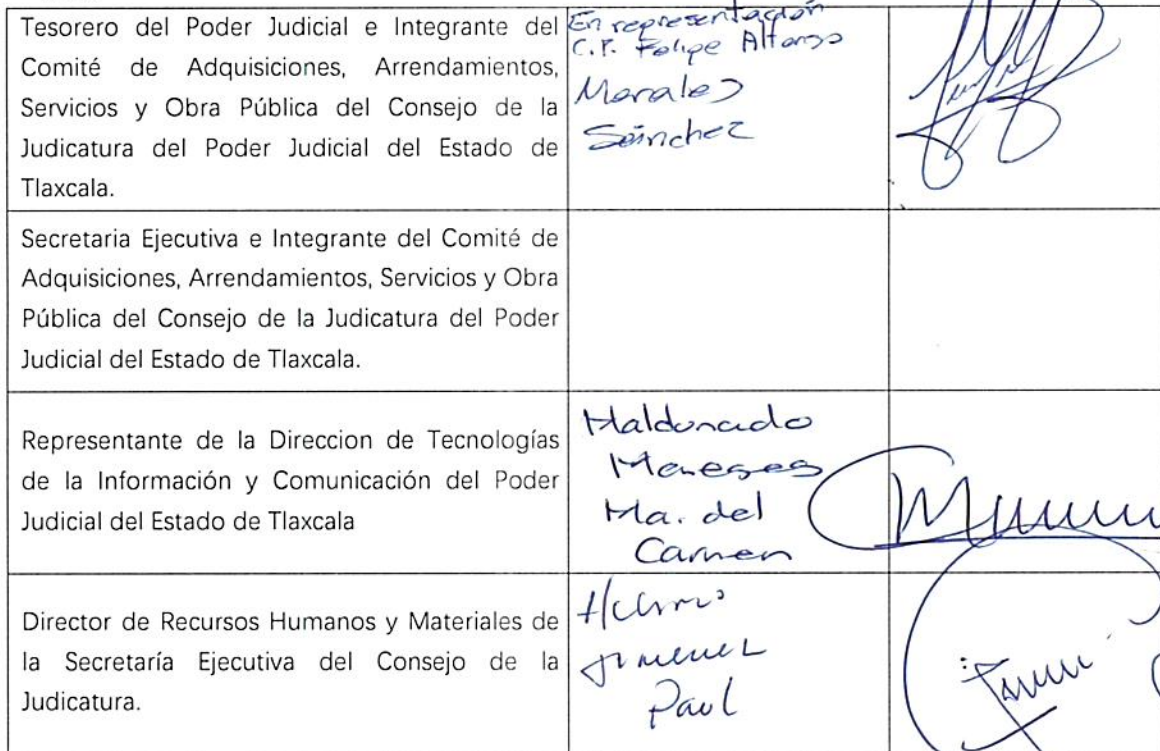 Tesorero del Poder Judicial e Integrante del
Comité de Adquisiciones, Arrendamientos,
Servicios y Obra Pública del Consejo de la
Judicatura del Poder Judicial del Estado de
Tlaxcala.
En representación
C.P. Felipe Alfonso
Morales
Sánchez
Secretaria Ejecutiva e Integrante del Comité de
Adquisiciones, Arrendamientos, Servicios y Obra
Pública del Consejo de la Judicatura del Poder
Judicial del Estado de Tlaxcala.
Representante de la Direccion de Tecnologías
de la Información y Comunicación del Poder
Judicial del Estado de Tlaxcala
Maldonado
Meneses
Ma. del
Carmen
Director de Recursos Humanos y Materiales de
la Secretaría Ejecutiva del Consejo de la
Judicatura.
Jimenez
Paul